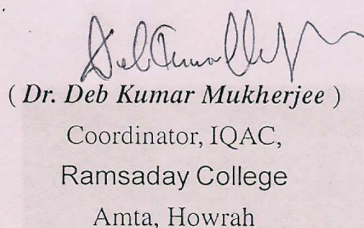 ( Dr. Deb Kumar Mukherjee )
Coordinator, IQAC,
Ramsaday College
Amta, Howrah